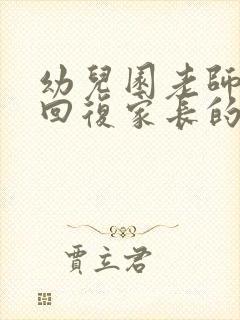 幼兒園老師
回復家長的
賈立君